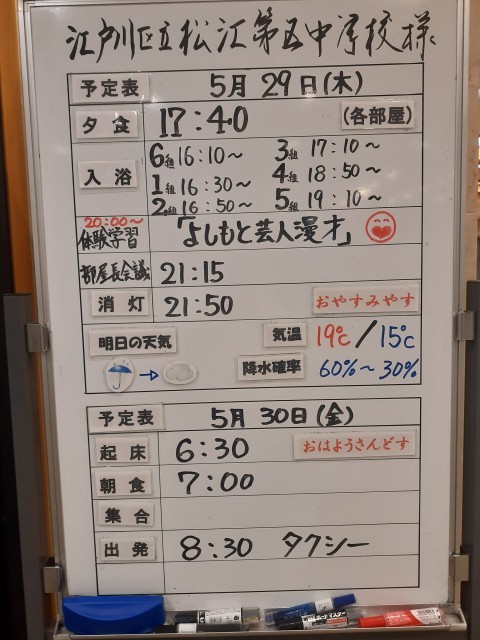 江戸川区立松江第五中学校様
予定表 5月29日(木)
夕食 17:40 (各部屋)
入浴
6組 16:10～ 3組 17:10～
1組 16:30～ 4組 18:50～
2組 16:50～ 5組 19:10～
20:00～
体験学習 「よしもと芸人漫才」
部屋長会議 21:15
消灯 21:50 おやすみやす
明日の天気 気温 19℃/15℃
降水確率 60%～30%
予定表 5月30日(金)
起床 6:30 おはようさんどす
朝食 7:00
集合
出発 8:30 タクシー